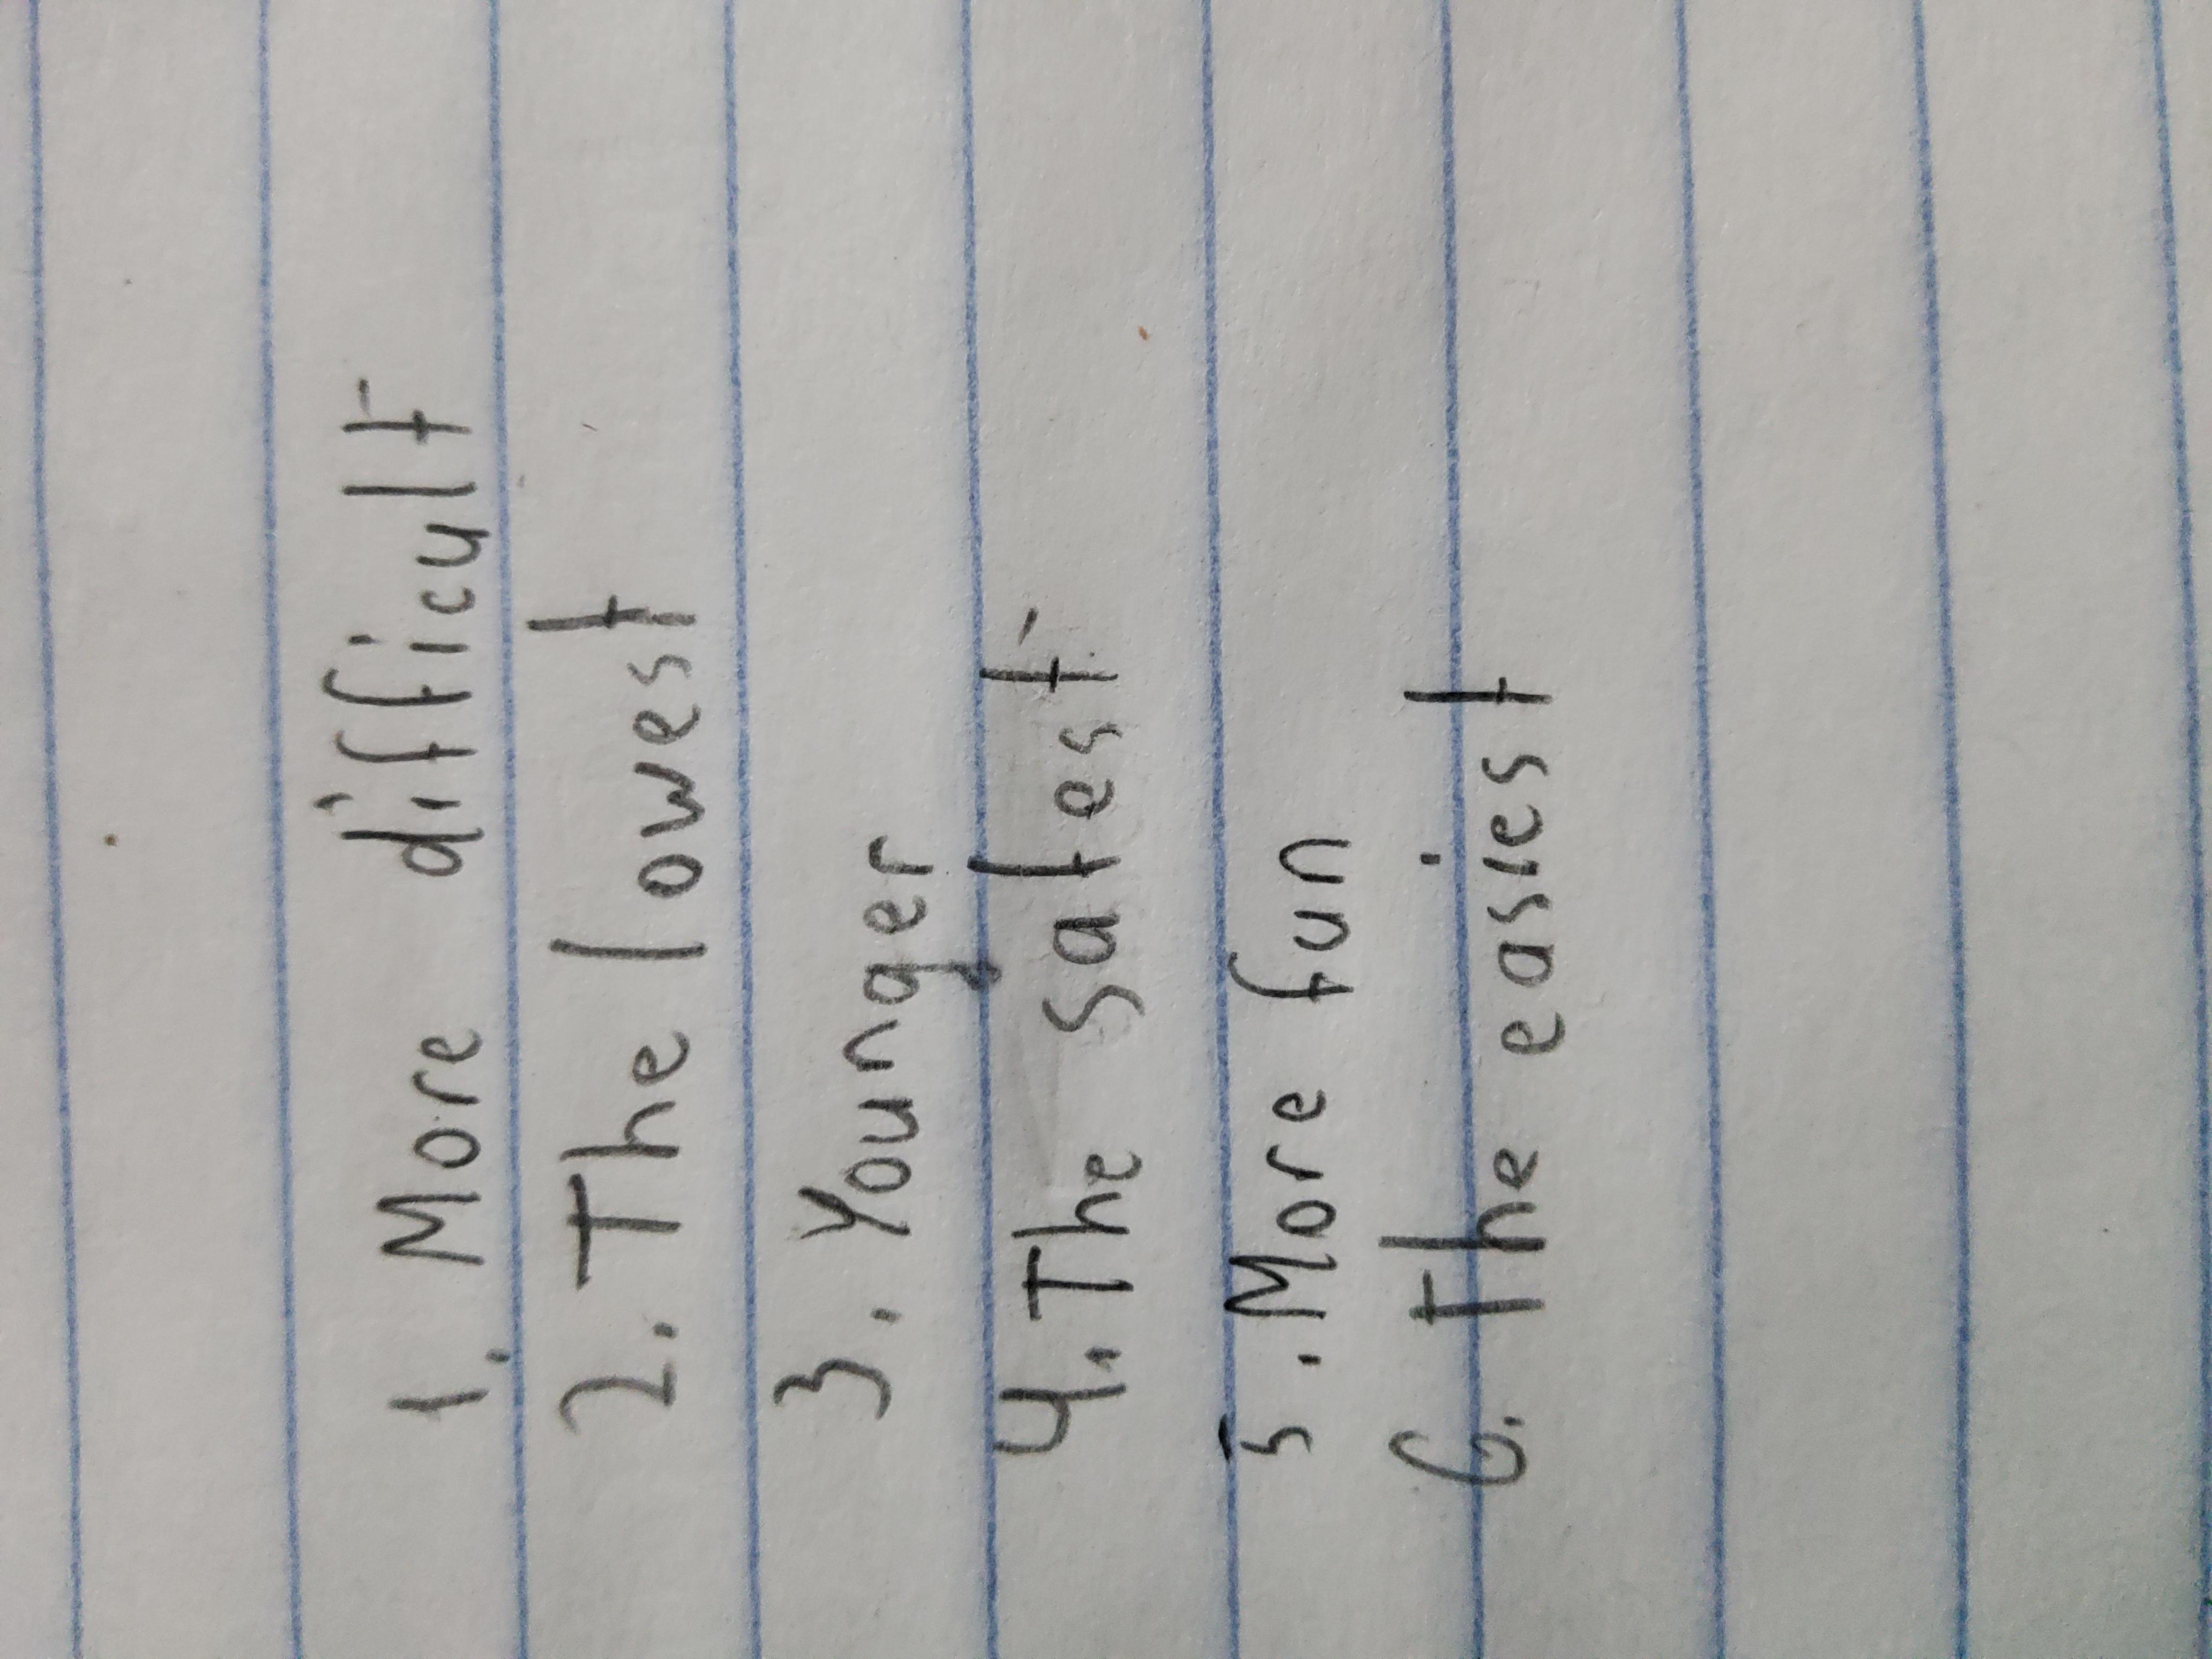 1. More difficult
2. The lowest
3. Younger
4. The safest
5. More fun
6. The easiest